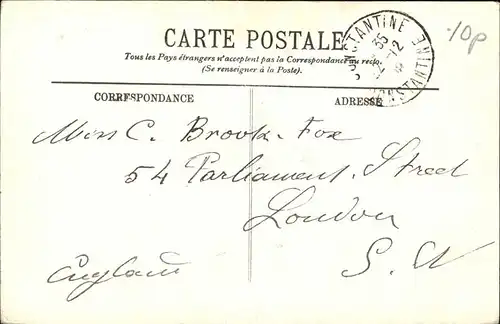 10p
CONSTANTINE
CARTE POSTALE
Tous les Pays étrangers n'acceptent pas la Correspondance au recto.
(Se renseigner à la Poste).
CORRESPONDANCE
ADRESSE
CONSTANTINE
Miss C. Brook-Fox
54 Parliament Street
London
England
S.W